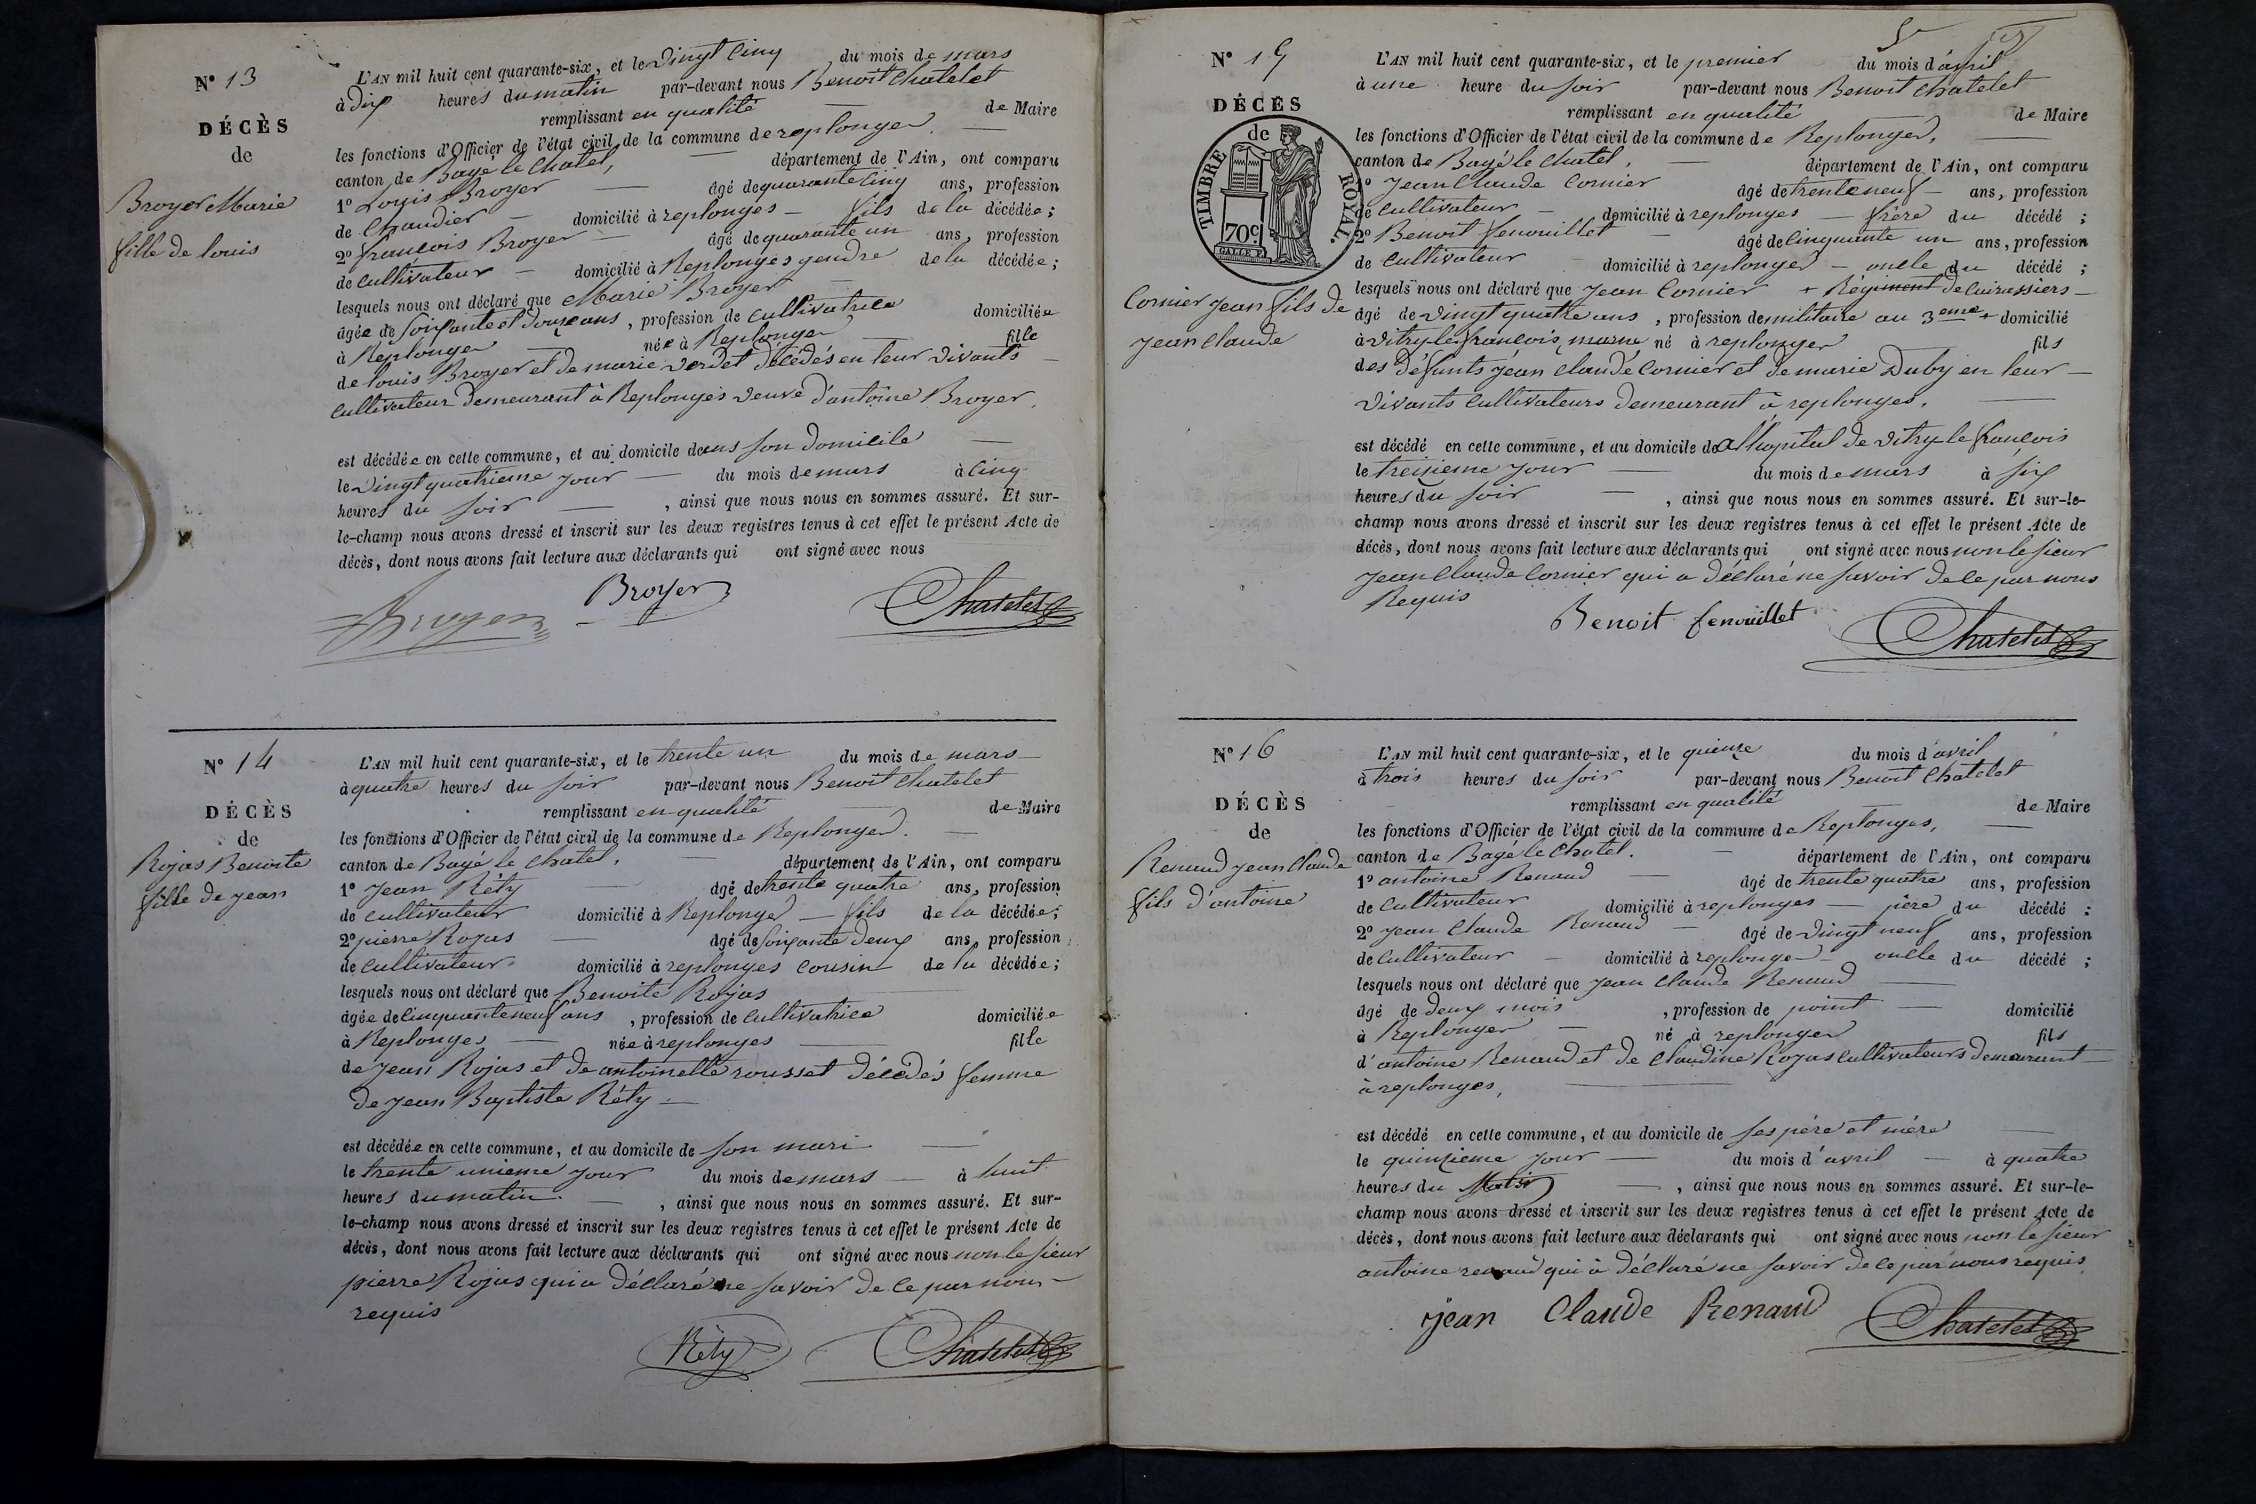 N° 13
DÉCÈS
de
Broyer Marie
fille de louis
L'AN mil huit cent quarante-six, et le vingt cinq du mois de mars
à dix heures du matin par-devant nous Benoit Chatelet
remplissant en qualité de Maire
les fonctions d'Officier de l'état civil de la commune de replonges
canton de Bagé le chatel, département de l'Ain, ont comparu
1° Louis Broyer âgé de quarante cinq ans, profession
de Chaudier domicilié à replonges fils de la décédée;
2° francois Broyer âgé de quarante un ans, profession
de cultivateur domicilié à Replonges gendre de la décédée;
lesquels nous ont déclaré que Marie Broyer
âgée de soixante et douze ans, profession de cultivatrice domiciliée
à Replonges née à Replonges fille
de louis Broyer et de marie verdet décédés en leur vivants
cultivateur demeurant à Replonges veuve d'antoine Broyer.
est décédée en cette commune, et au domicile dans son domicile
le vingt quatrieme jour du mois de mars à cinq
heures du soir, ainsi que nous nous en sommes assuré. Et sur-
le-champ nous avons dressé et inscrit sur les deux registres tenus à cet effet le présent Acte de
décès, dont nous avons fait lecture aux déclarants qui ont signé avec nous
Broyer Broyer Chatelet
N° 14
DÉCÈS
de
Rojas Benoite
fille de jean
L'AN mil huit cent quarante-six, et le trente un du mois de mars
à quatre heures du soir par-devant nous Benoit Chatelet
remplissant en qualité de Maire
les fonctions d'Officier de l'état civil de la commune de Replonges.
canton de Bagé le chatel, département de l'Ain, ont comparu
1° Jean Réty âgé de trente quatre ans, profession
de cultivateur domicilié à Replonges fils de la décédée;
2° pierre Rojas âgé de soixante deux ans, profession
de cultivateur domicilié à replonges cousin de la décédée;
lesquels nous ont déclaré que Benoite Rojas
âgée de cinquante neuf ans, profession de cultivatrice domiciliée
à Replonges née à replonges fille
de jean Rojas et de antoinette rousset décédés femme
de jean Baptiste Réty
est décédée en cette commune, et au domicile de son mari
le trente unieme jour du mois de mars à huit
heures du matin, ainsi que nous nous en sommes assuré. Et sur-
le-champ nous avons dressé et inscrit sur les deux registres tenus à cet effet le présent Acte de
décès, dont nous avons fait lecture aux déclarants qui ont signé avec nous non le sieur
pierre Rojas qui a déclaré ne savoir de ce par nous
requis
Réty Chatelet
N° 15
DÉCÈS
de
TIMBRE ROYAL.
70c
Cornier jean fils de
jean claude
L'AN mil huit cent quarante-six, et le premier du mois d'avril
à une heure du soir par-devant nous Benoit Chatelet
remplissant en qualité de Maire
les fonctions d'Officier de l'état civil de la commune de Replonges,
canton de Bagé le chatel, département de l'Ain, ont comparu
1° Jean Claude Cornier âgé de trente neuf ans, profession
de cultivateur domicilié à replonges frère du décédé;
2° Benoit fenouillet âgé de cinquante un ans, profession
de cultivateur domicilié à replonges oncle du décédé;
lesquels nous ont déclaré que Jean Cornier + Régiment de cuirassiers
âgé de vingt quatre ans, profession de militaire au 3eme + domicilié
à vitry le francois marne né à replonges fils
des défunts jean claude Cornier et de marie Duby en leur
vivants cultivateurs demeurant à replonges.
est décédé en cette commune, et au domicile de a l'hopital de vitry le francois
le treizieme jour du mois de mars à six
heures du soir, ainsi que nous nous en sommes assuré. Et sur-le-
champ nous avons dressé et inscrit sur les deux registres tenus à cet effet le présent Acte de
décès, dont nous avons fait lecture aux déclarants qui ont signé avec nous non le sieur
jean Claude Cornier qui a déclaré ne savoir de ce par nous
Requis
Benoit fenouillet Chatelet
N° 16
DÉCÈS
de
Renaud jean Claude
fils d'antoine
L'AN mil huit cent quarante-six, et le quinze du mois d'avril
à trois heures du soir par-devant nous Benoit Chatelet
remplissant en qualité de Maire
les fonctions d'Officier de l'état civil de la commune de Replonges,
canton de Bagé le chatel. département de l'Ain, ont comparu
1° antoine Renaud âgé de trente quatre ans, profession
de cultivateur domicilié à replonges père du décédé;
2° jean claude Renaud âgé de vingt neuf ans, profession
de cultivateur domicilié à replonges oncle du décédé;
lesquels nous ont déclaré que jean Claude Renaud
âgé de deux mois, profession de point domicilié
à Replonges né à replonges fils
d'antoine Renaud et de Claudine Rojas cultivateurs demeurant
à replonges,
est décédé en cette commune, et au domicile de ses père et mère
le quinzieme jour du mois d'avril à quatre
heures du Matin, ainsi que nous nous en sommes assuré. Et sur-le-
champ nous avons dressé et inscrit sur les deux registres tenus à cet effet le présent Acte de
décès, dont nous avons fait lecture aux déclarants qui ont signé avec nous non le sieur
antoine renaud qui à déclaré ne savoir de ce par nous requis
jean Claude Renaud Chatelet